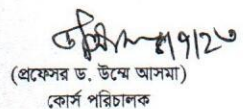 (প্রফেসর ড. উম্মে আসমা)
কোর্স পরিচালক